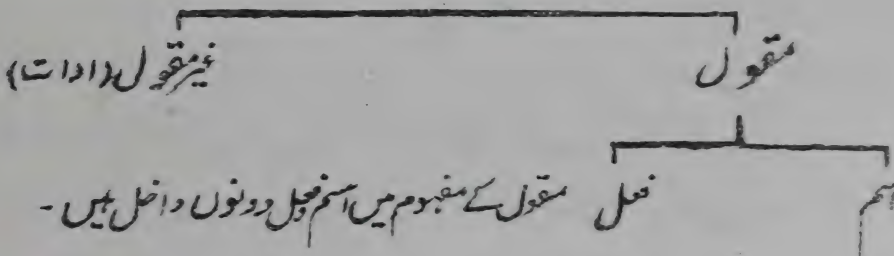 مقول غیر مقول (ادات)
اسم فعل مقول کے مفہوم میں اسم و فعل دونوں داخل ہیں۔